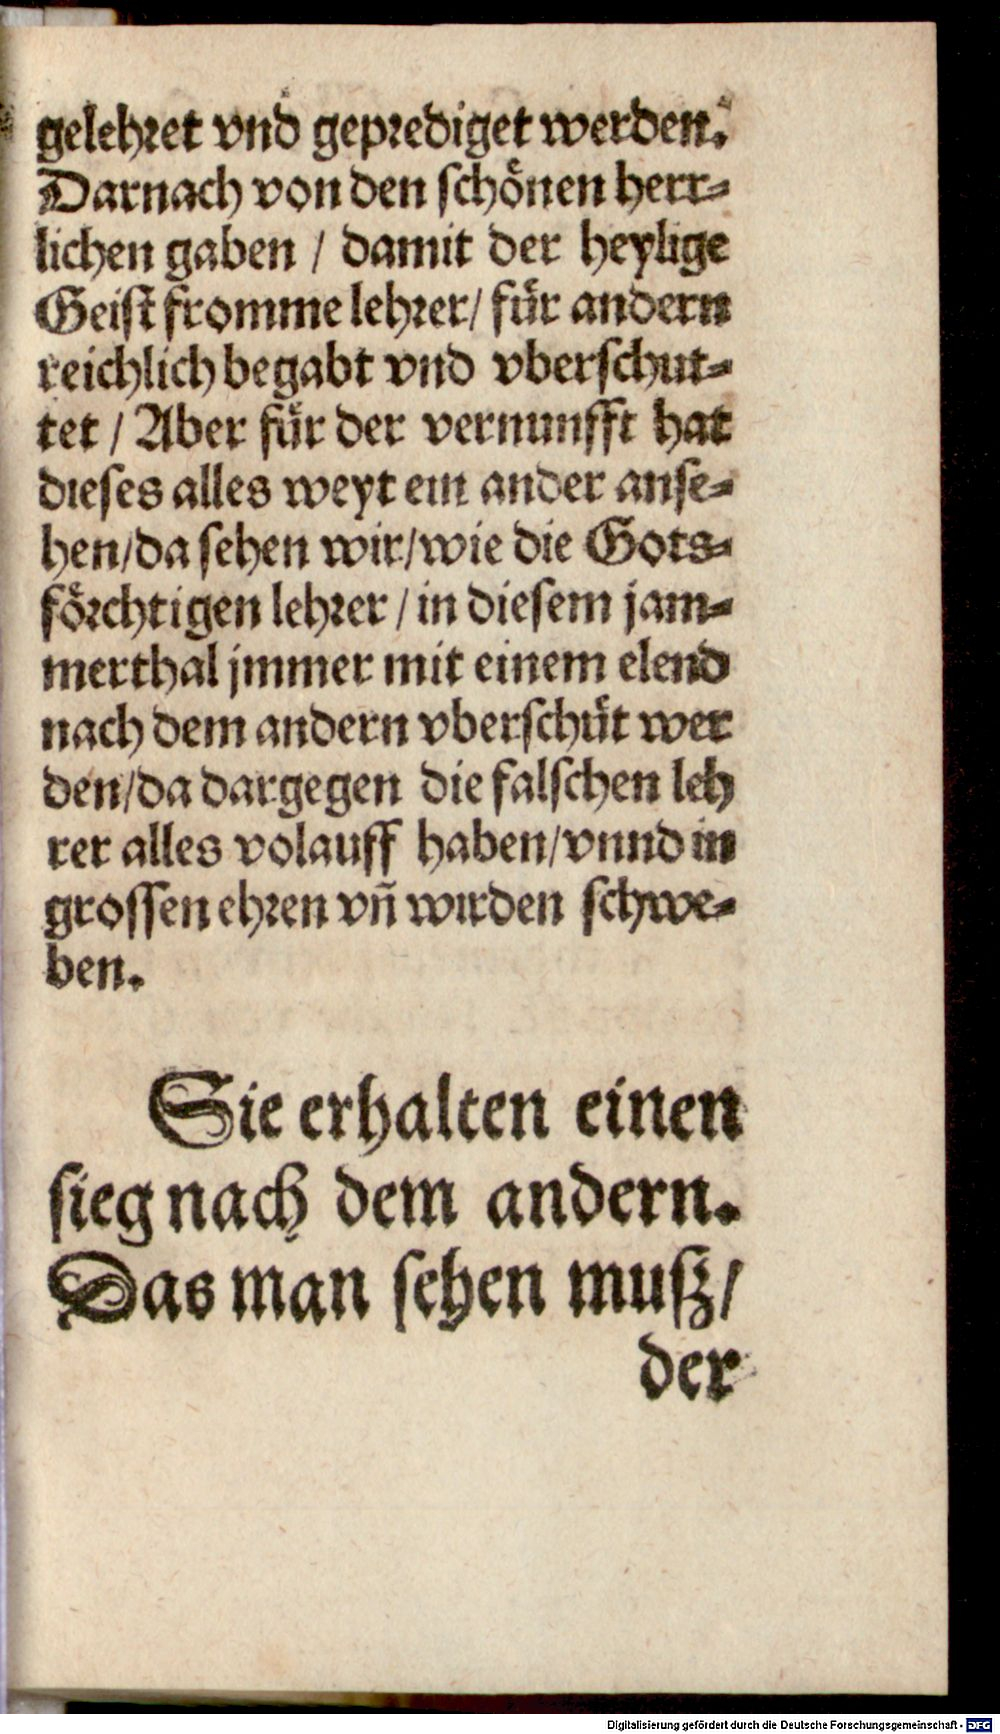 gelehret vnd geprediget werden.
Darnach von den schönen herr-
lichen gaben / damit der heylige
Geist fromme lehrer/ für andern
reichlich begabt vnd vberschut-
tet / Aber für der vernunfft hat
dieses alles weyt ein ander anse-
hen/da sehen wir/wie die Gots-
förchtigen lehrer / in diesem jam-
merthal jmmer mit einem elend
nach dem andern vberschüt wer
den/da dargegen die falschen leh
rer alles volauff haben/vnnd in
grossen ehren vñ wirden schwe-
ben.
Sie erhalten einen
sieg nach dem andern.
Das man sehen muß/
der
Digitalisierung gefördert durch die Deutsche Forschungsgemeinschaft - DFG